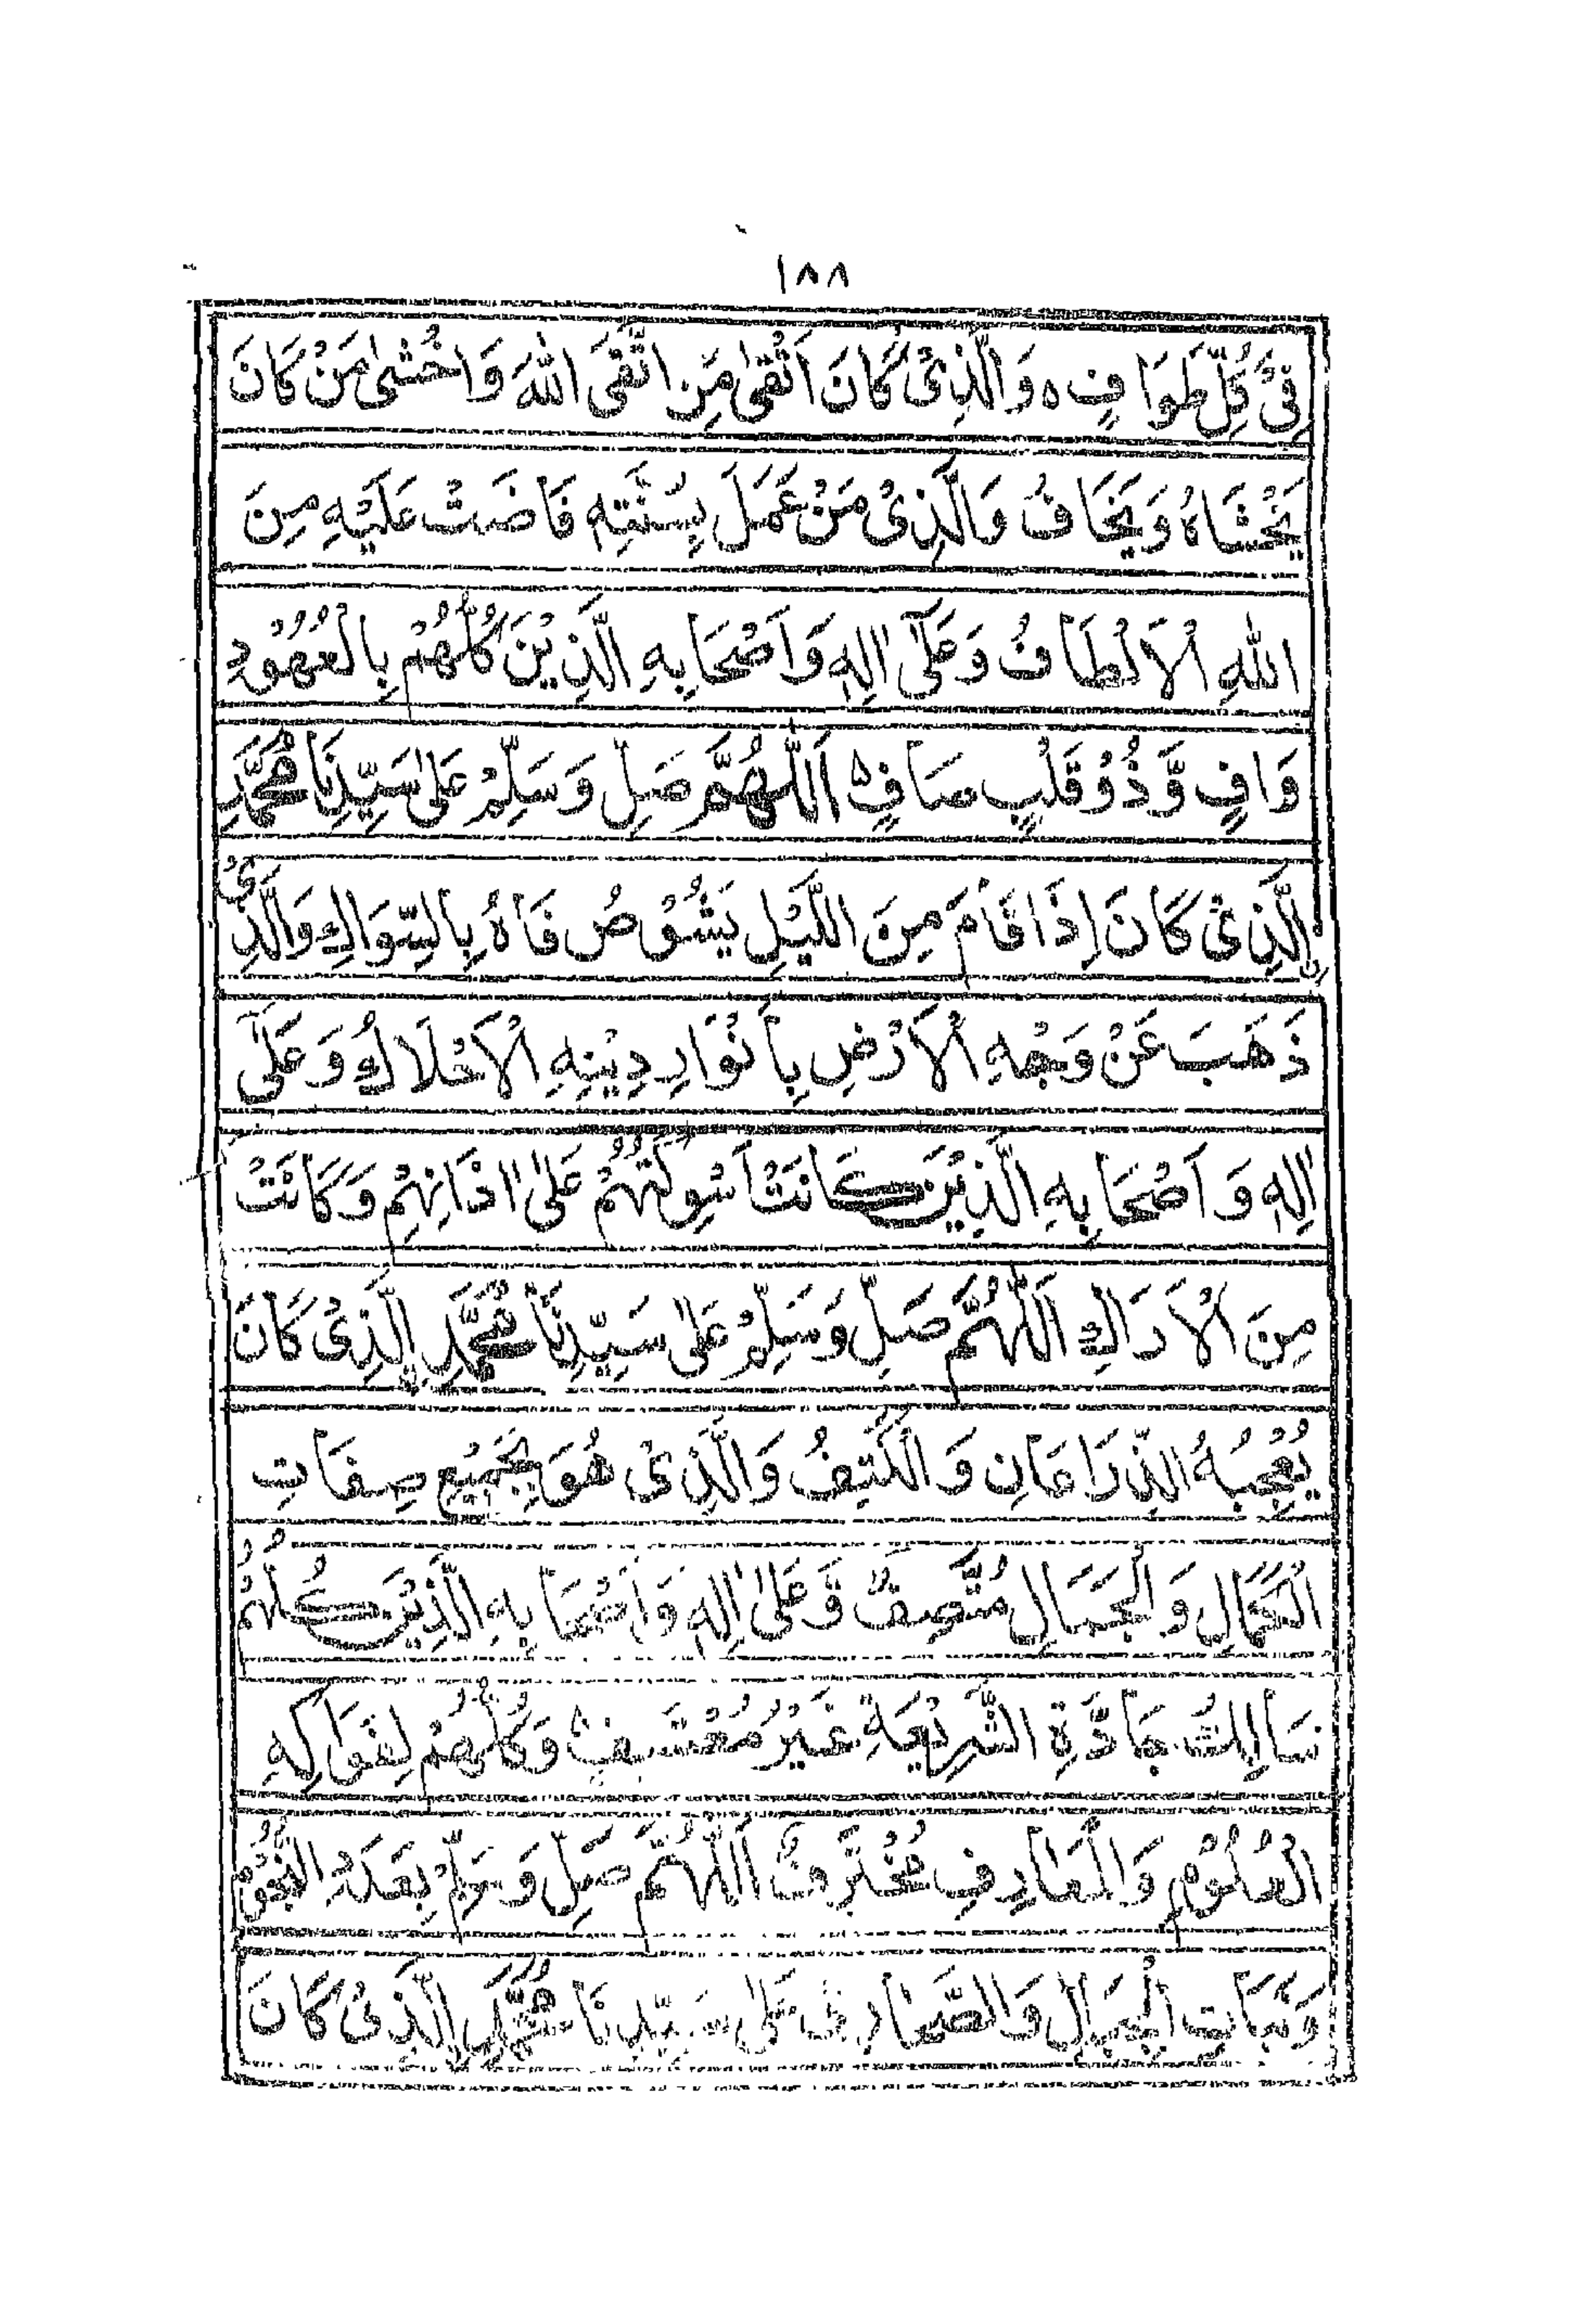 ١٨٨
فِيْ كُلِّ طَوَافٍ ه وَالَّذِيْ كَانَ اَتْقٰى مَنِ اتَّقَى اللهَ وَاخْشٰى مَنْ كَانَ
يَخْشَاهُ وَيَخَافُ وَالَّذِيْ مَنْ عَمَلَ بِسُنَّتِهٖ فَاضَتْ عَلَيْهِ مِنَ
اللهِ الْاَلْطَافُ وَعَلٰٓى اٰلِهٖ وَاَصْحَابِهِ الَّذِيْنَ كُلُّهُمْ بِالْعُهُوْدِ
وَافٍ وَّذُوْ قَلْبٍ صَافٍ اَللّٰهُمَّ صَلِّ وَسَلِّمْ عَلٰى سَيِّدِنَا مُحَمَّدِ
الَّذِيْ كَانَ اِذَا قَامَ مِنَ اللَّيْلِ يَشُوْصُ فَاهُ بِالسِّوَاكِ وَالَّذِيْ
ذَهَبَ عَنْ وَجْهِ الْاَرْضِ بِاَنْوَارِ دِيْنِهِ الْاَحْلَاكُ وَعَلٰٓى
اٰلِهٖ وَاَصْحَابِهِ الَّذِيْنَ كَانَتْ اَسْوِكَتُهُمْ عَلٰى اٰذَانِهِمْ وَكَانَتْ
مِنَ الْاَرَاكِ اَللّٰهُمَّ صَلِّ وَسَلِّمْ عَلٰى سَيِّدِنَا مُحَمَّدِ اِلَّذِيْ كَانَ
يُعْجِبُهُ الذِّرَاعَانِ وَالْكَتِفُ وَالَّذِيْ هُوَ بِجَمِيْعِ صِفَاتِ
الْكَمَالِ وَالْجَمَالِ مُتَّصِفٌ وَّعَلٰى اٰلِهٖ وَاَصْحَابِهِ الَّذِيْنَ كُلُّهُمْ
سَالِكُ جَادَّةِ الشَّرِيْعَةِ غَيْرُ مُعْتَسِفٍ وَكُلُّهُمْ لِفَوَاكِهِ
الْعُلُوْمِ وَالْمَعَارِفِ مُغْتَرِفٌ اَللّٰهُمَّ صَلِّ وَسَلِّمْ بِعَدَدِ النُّجُوْمِ
وَنَبَاتِ الْجِبَالِ وَالصَّحَارِيْ عَلٰى سَيِّدِنَا مُحَمَّدِ اِلَّذِيْ كَانَ